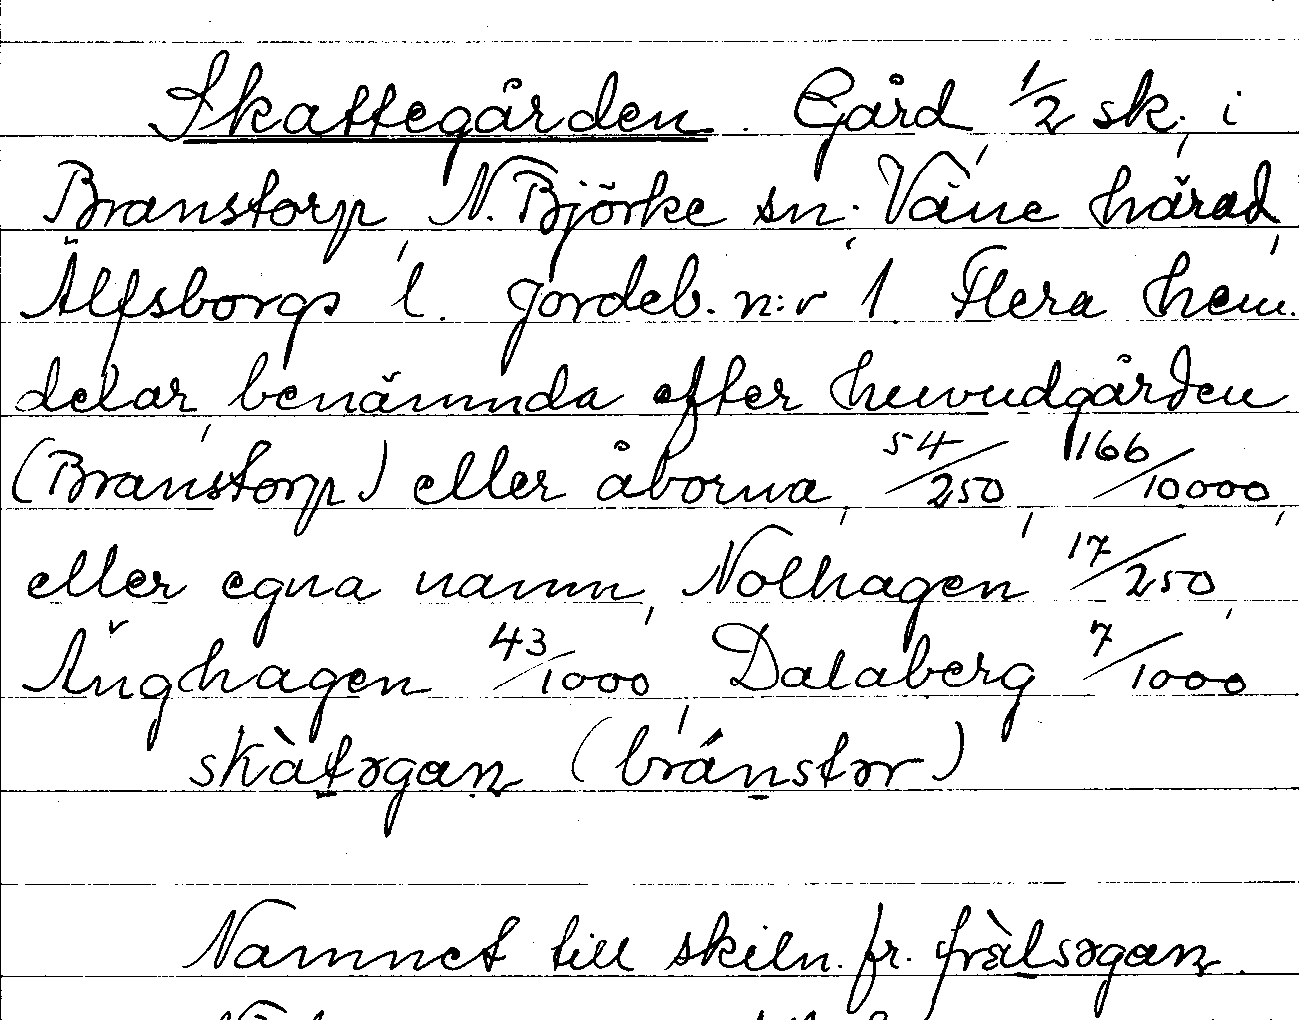 Skattegården. Gård, 1/2 sk., i
Branstorp, N. Björke sn. Väne härad,
Älfsborgs l. Jordeb. n:r 1. Flera hem.
delar, benämnda efter huvudgården
(Branstorp) eller åborna, 54/250, 166/10000,
eller egna namn, Nolhagen 17/250,
Änghagen 43/1000, Dalaberg 7/1000
skàtəgan (bránstər)
Namnet till skiln. fr. fràlsəgan.